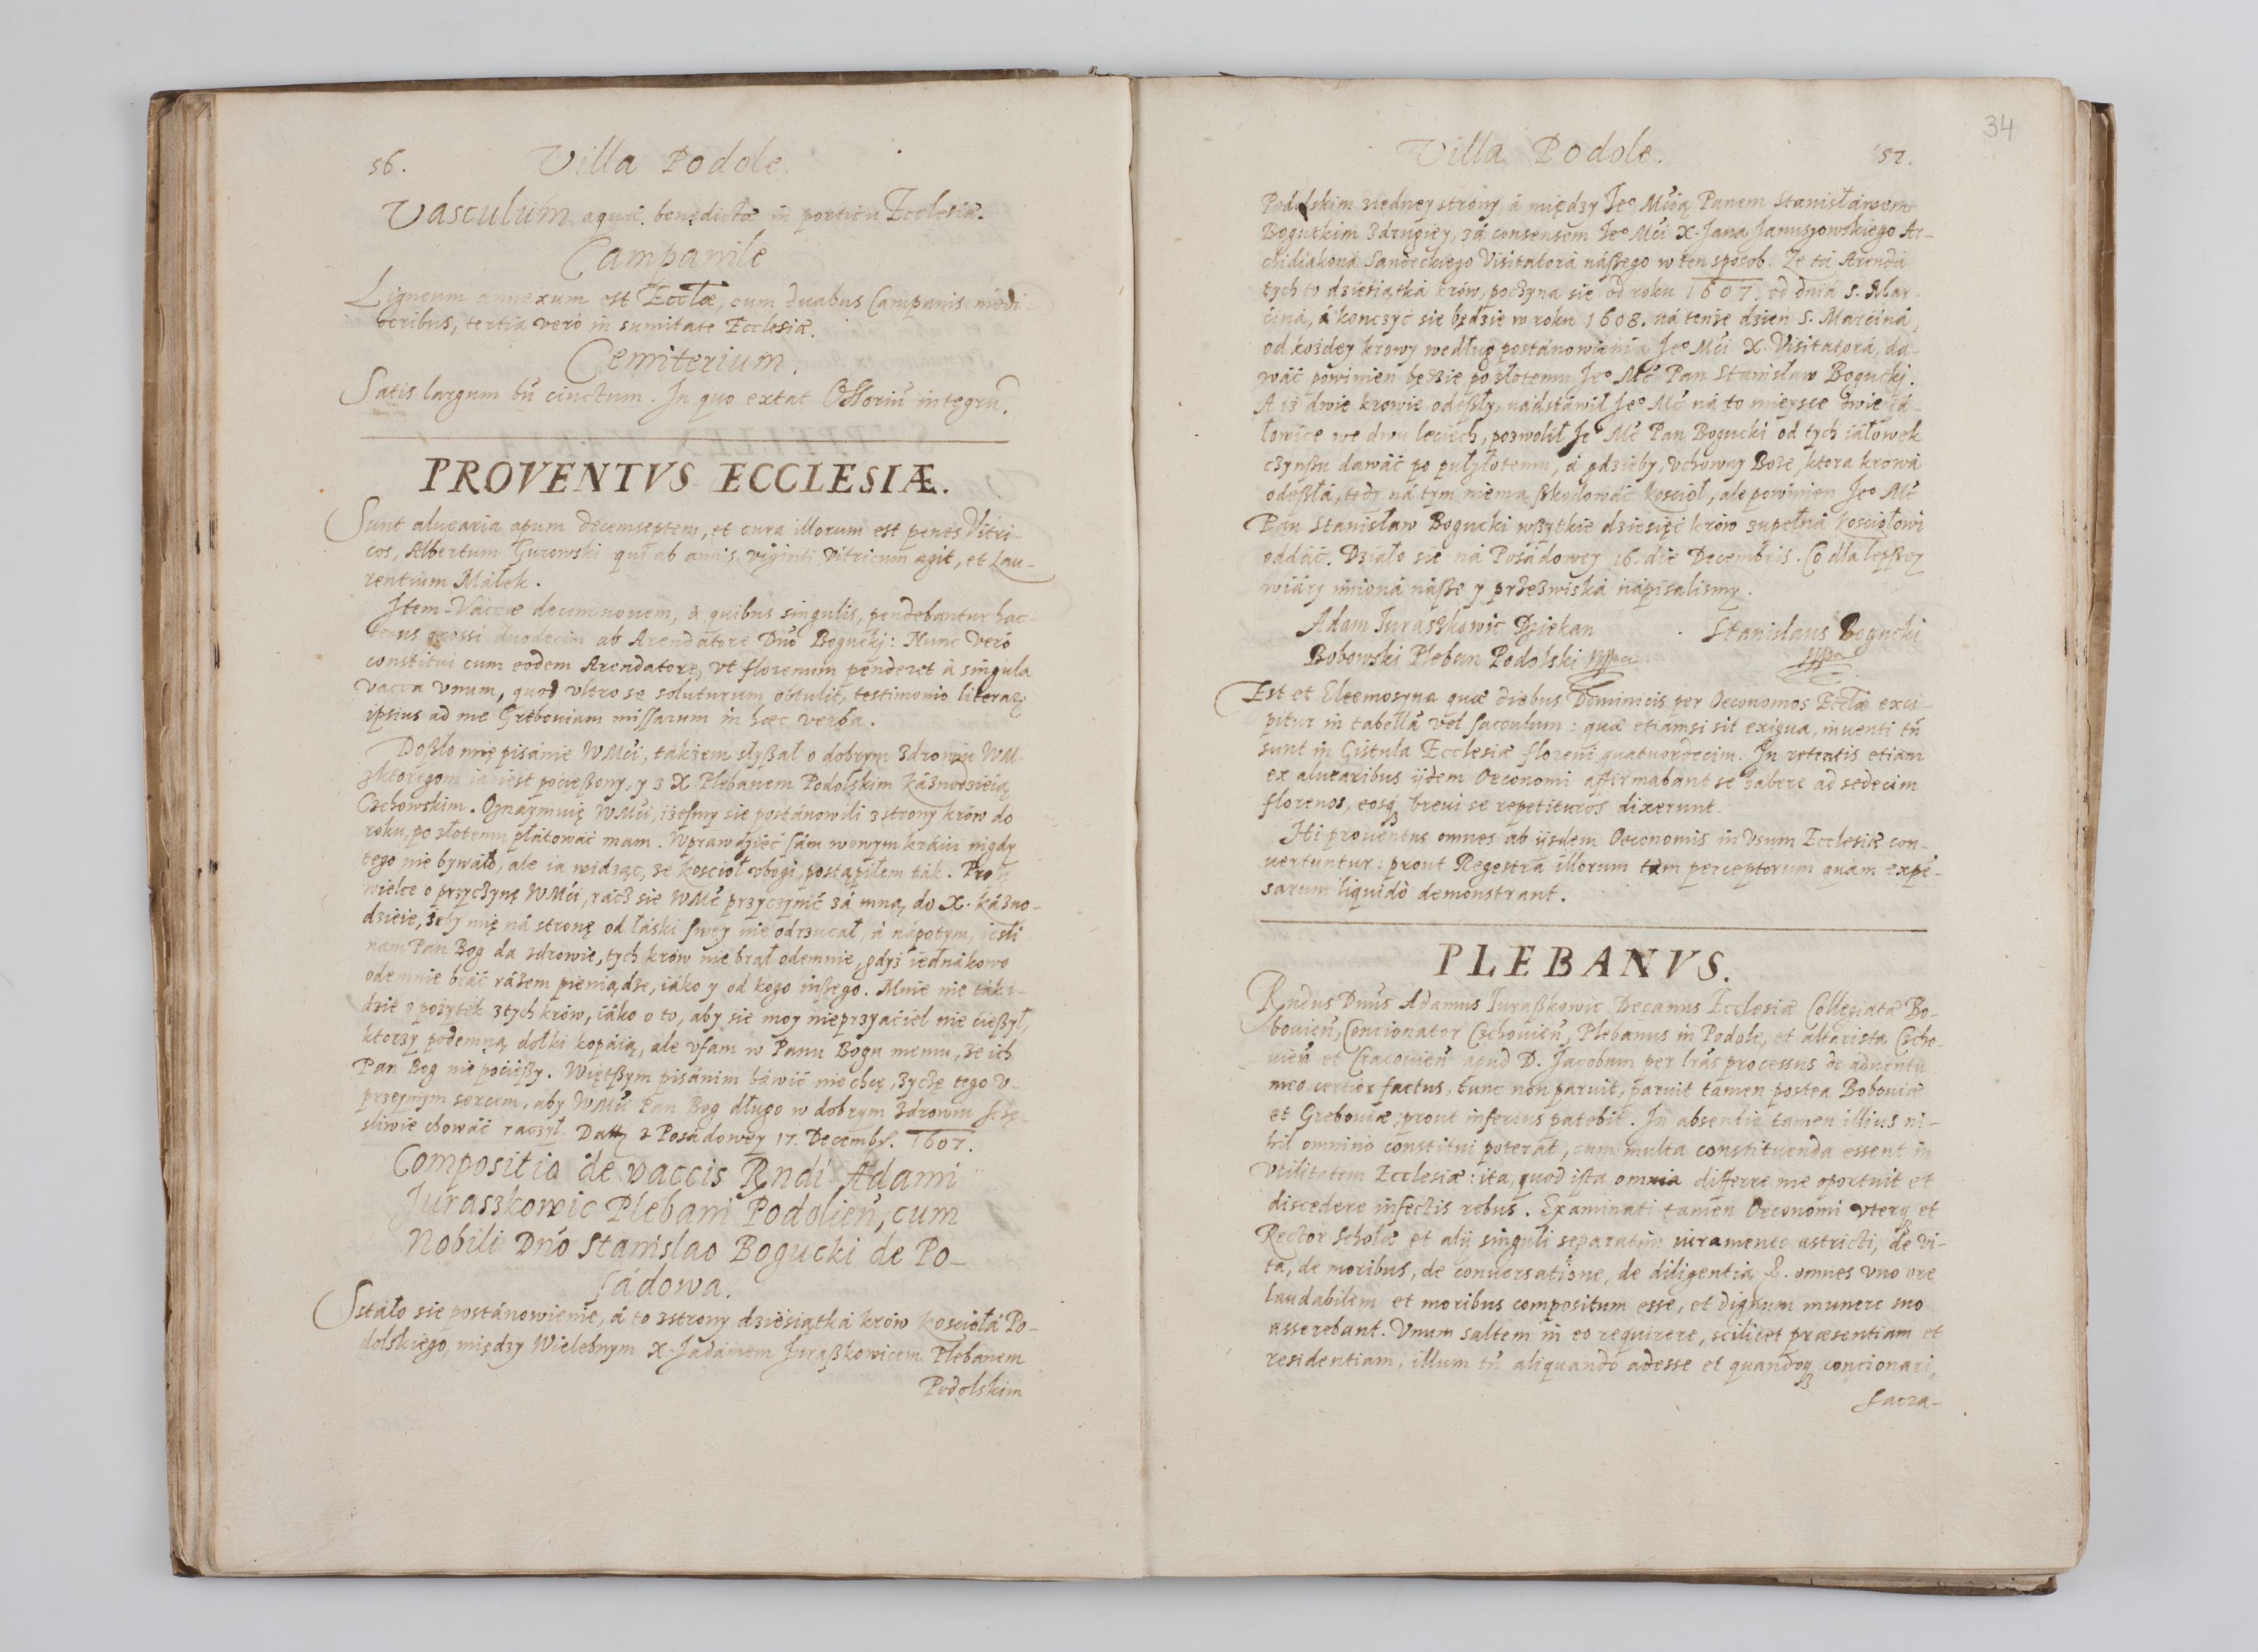 56. Villa Podole.
Vasculum aquæ benedictæ in porticu Ecclesiæ.
Campanile
Ligneum annexum est Eccłæ, cum duabus Campanis medi-
ocribus, tertia vero in sumitate Ecclesiæ.
Cemiterium.
Satis largum tñ cinctum. In quo extat Ossoriũ integrũ.
PROVENTVS ECCLESIÆ.
Sunt aluearia apum decemseptem, et cura illorum est penes Vitri-
cos, Albertum Gurowski qui ab annis viginti Vitricum agit, et Lau-
rentium Małek.
Item Vaccæ decemnouem, à quibus singulis, pendebantur hac-
tenus grossi duodecim ab Arendatore Dño Bogucki: Nunc vero
constitui cum eodem Arendatore, vt florenum penderet à singula
vacca vnum, quod vltro se soluturum obtulit, testimonio literarũ
ipsius ad me Greboviam missarum in hæc verba.
Doszło mię pisánie WMći, tákżem słyszał o dobrym zdrowiu WM.
z ktoregom ia iest pocieszony, y z X Plebanem Podolskim Káznodzieią
Czchowskim. Oznáymuię WMći, iżesmy sie postánowili z strony krów do
roku, po złotemu płátowáć mam. Wprawdzieć sám w owym kráiu nigdy
tego nie bywáło, ale ia widząc, że kościoł vbogi, postąpiłem ták. Proszę
wielce o przyczynę WMći, rácz sie WMć przyczynić zá mną, do X. Kázno-
dzieie, żeby mię ná stronę od łáski swey nie odrzucał, á nápotym, iesli
nam Pan Bog da zdrowie, tych krów nie brał odemnie, gdyż iednákowo
odemnie bráć rázem pieniądze, iáko y od kogo inszego. Mnie nie ták i-
dzie o pożytek z tych krów, iáko o to, aby sie moy nieprzyaćiel nie ćieszył,
ktorzy podemną dołki kopáią, ale vfam w Panu Bogu memu, że ich
Pan Bog nie poćieszy. Więtszym pisánim báwić nie chcę, życzę tego v-
przeymym sercem, aby WMći Pan Bog długo w dobrym zdrowiu szczę-
sliwie chowáć raczył. Datt z Posádowey 17. Decembr. 1607.
Compositio de vaccis Rndi Adami
Juraszkowic Plebani Podolień, cum
Nobili Dño Stanislao Bogucki de Po-
sádowa.
Sstáło sie postánowienie, á to z strony dziesiątká krów kościołá Po-
dolskiego, między Wielebnym X. Jadámem Juraszkowicem Plebanem
Podolskim
34
Villa Podole. 57.
Podolskim z iedney strony, á między Jeo Mćią Panem Stanisłáwem
Boguckim z drugiey, zá consensem Jeo Mći X. Jana Januszowskiego Ar-
chidiakoná Sandeckiego Visitatorá nászego w ten sposob. Że tá Arendá
tych to dziesiątká krów, poczyna sie od roku 1607. od dniá S. Mar-
ciná, á konczyć sie będzie w roku 1608. ná tenże dzien S. Marćiná,
od kożdey krowy według postánowienia Jeo Mći X. Visitatorá, da-
wáć powinien będzie po złotemu Jeo Mć Pan Stanisław Bogucki.
A iż dwie krowie odeszły, nádstáwił Jeo Mć ná to mieysce dwie iá-
łowice we dwu leciech, pozwolił Jeo Mć Pan Bogucki od tych iáłowek
czynszu dawáć po pułzłotemu, á gdzieby, vchoway Boże, ktora krowá
odeszłá, tedy ná tym niema szkodowáć kościoł, ale powinien Jeo Mć
Pan Stanisław Bogucki wszytkie dziesięć krów zupełná kościołowi
oddáć. Działo sie ná Posádowey 16. die Decembris. Co dla lepszey
wiáry imioná násze y przezwiská nápisálismy.
Adam Juraszkowic Dziekan Stanislaus Bogucki
Bobowski Pleban Podolski mppa mppa
Est et Eleemosyna quæ diebus Dominicis per Oeconomos Eccłæ exci-
pitur in tabellã vel sacculum: quæ etiamsi sit exigua, inuenti tñ
sunt in Cistula Ecclesiæ floreni quatuordecim. In retentis etiam
ex aluearibus ijdem Oeconomi affirmabant se habere ad sedecim
florenos, eosq breui se repetituros dixerunt.
Hi prouentus omnes ab ijsdem Oeconomis in Vsum Ecclesiæ con-
uertuntur: prout Regestra illorum tam perceptorum quàm expẽ-
sarum liquidò demonstrant.
PLEBANVS.
Rndus Dnus Adamus Juraszkowic Decanus Ecclesiæ Collegiatæ Bo-
bouień, Concionator Czchouień, Plebanus in Podole, et altarista Czcho-
uień et Cracouień apud D. Jacobum per lrás processus de aduentu
meo certior factus, tunc non paruit, paruit tamen postea Bobouiæ
et Grebouiæ, prout inferius patebit. In absentia tamen illius ni-
hil omnino constitui poterat, cum multa constituenda essent in
Vtilitatem Ecclesiæ: ita, quod ista omnia differre me oportuit et
discedere infectis rebus. Examinati tamen Oeconomi vterq et
Rector Scholæ et alij singuli separatim iuramento astricti, de vi-
ta, de moribus, de conuersatione, de diligentia &. omnes vno ore
laudabilem et moribus compositum esse, et dignum munere suo
asserebant. Vnum saltem in eo requirere, scilicet præsentiam et
residentiam, illum tñ aliquando adesse et quandoq concionari,
Sacra-